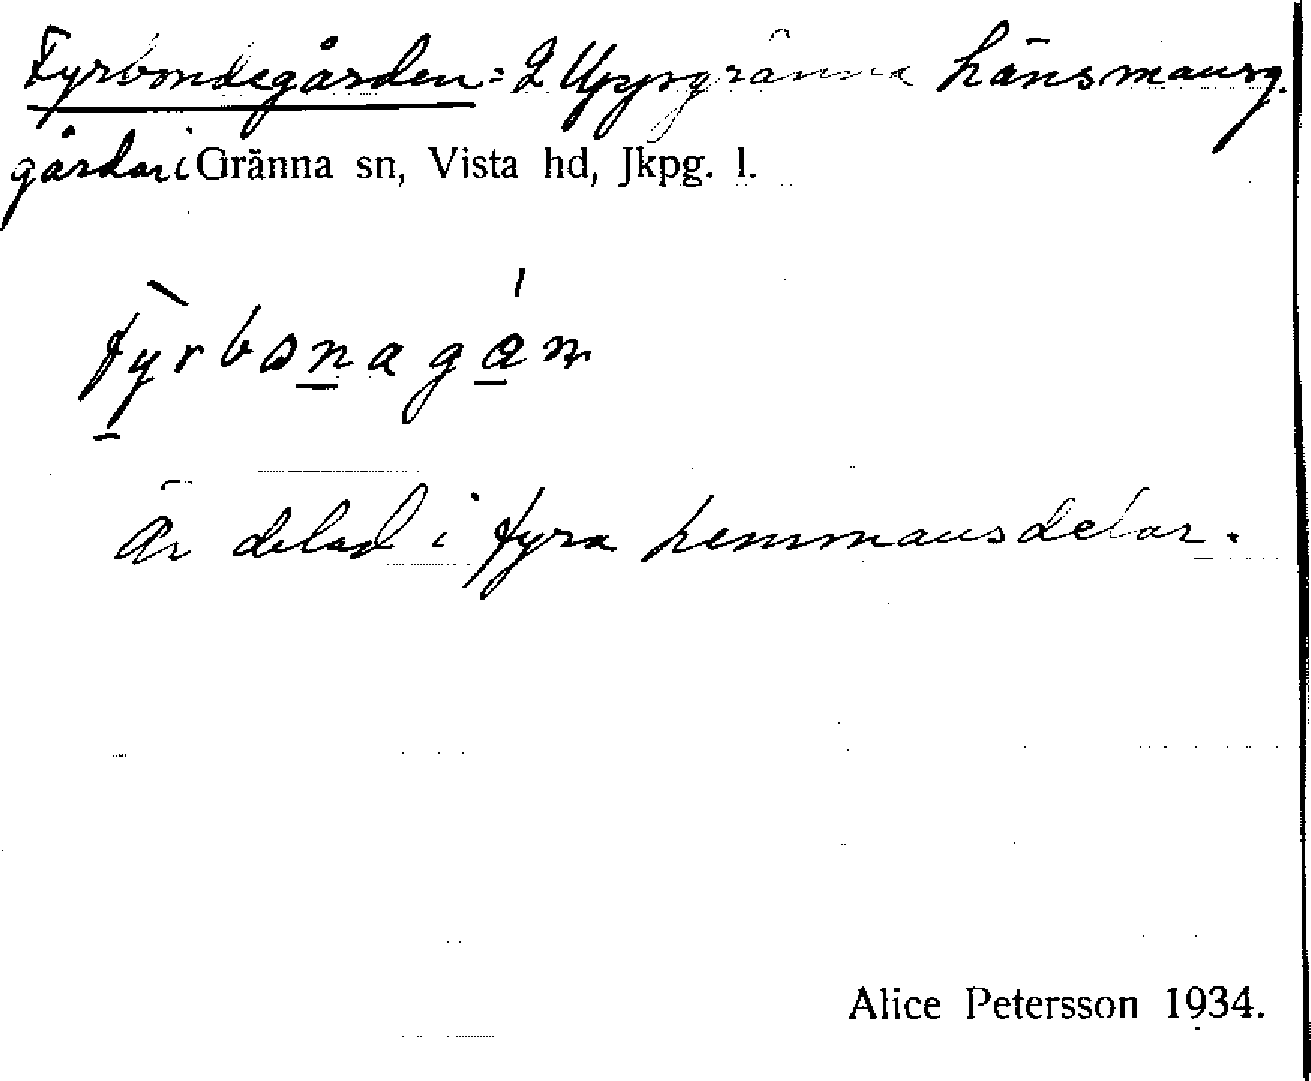 Fyrbondegården = 2 Uppgränna Länsmansg.
gårdar i Gränna sn, Vista hd, Jkpg. l.
fỳ̲rbon̲agá̲ṇ
Är delad i fyra hemmansdelar.
Alice Petersson 1934.